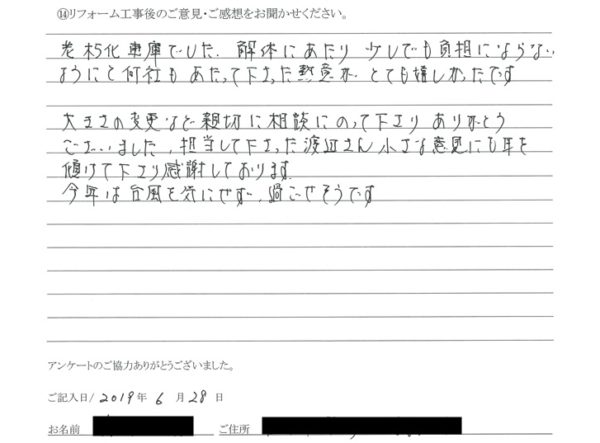 ⑭リフォーム工事後のご意見・ご感想をお聞かせください。
老朽化車庫でした。解体にあたり 少しでも負担にならない
ようにと何社も あたって下さった熱意が とても嬉しかったです
大きさの変更など親切に相談にのって下さり ありがとう
ございました。担当して下さった渡辺さん小さな意見にも耳を
傾けて下さり感謝しております。
今年は台風を気にせず、過ごせそうです
アンケートのご協力ありがとうございました。
ご記入日/2019年 6 月 28 日
お名前 ご住所